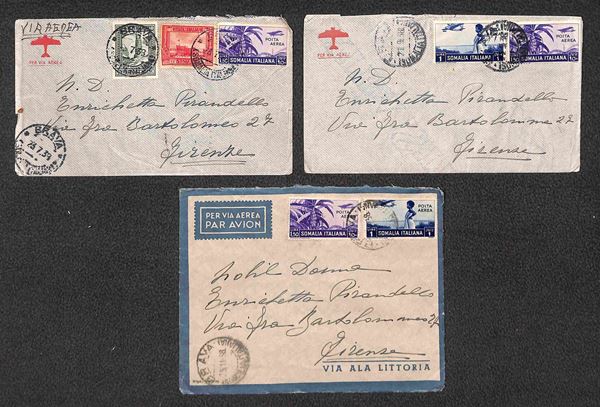 VIA AEREA
PER VIA AEREA
BRAVA
POSTA AEREA
SOMALIA ITALIANA
BRAVA
23.7.35
N. D.
Enrichetta Pirandello
Via Fra Bartolomeo 27
Firenze
PER VIA AEREA
POSTA AEREA
1 SOMALIA ITALIANA
POSTA AEREA
SOMALIA ITALIANA
N. D.
Enrichetta Pirandello
Via Fra Bartolommeo 27
Firenze
PER VIA AEREA
PAR AVION
POSTA AEREA
1,50 SOMALIA ITALIANA
POSTA AEREA
1 SOMALIA ITALIANA 1
Nobil Donna
Enrichetta Pirandello
Via Fra Bartolommeo 27
Firenze
BRAVA
VIA ALA LITTORIA